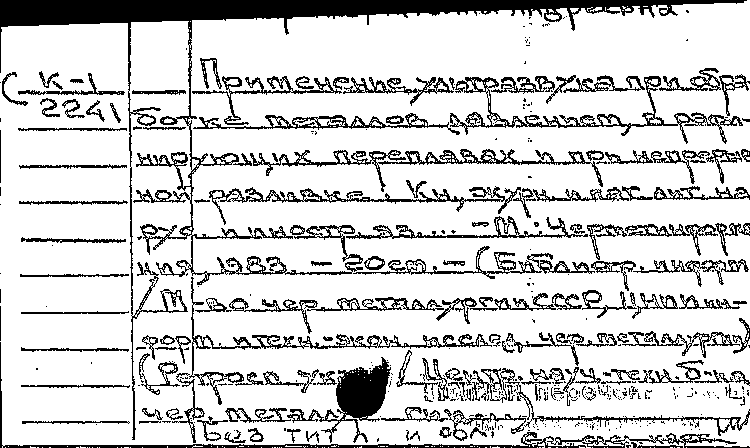 Андреевна.
К-1 Применение ультразвука при обра-
2241 ботке металлов давлением, в рафи-
нирующих переплавах и при непрерыв-
ной разливке: Кн., журн. и пат. лит. на
рус. и иностр. яз. ... - М.: Черметинформа-
ция, 1983. - 20 см. - (Библиогр. информ
/ М-во чер. металлургии СССР, ЦНИИ ин-
форм. и техн.-экон. исслед. чер. металлургии)
(Ретросп. ук / Центр. науч.-техн. б-ка
чер. металл
Без тит. л. и обл.